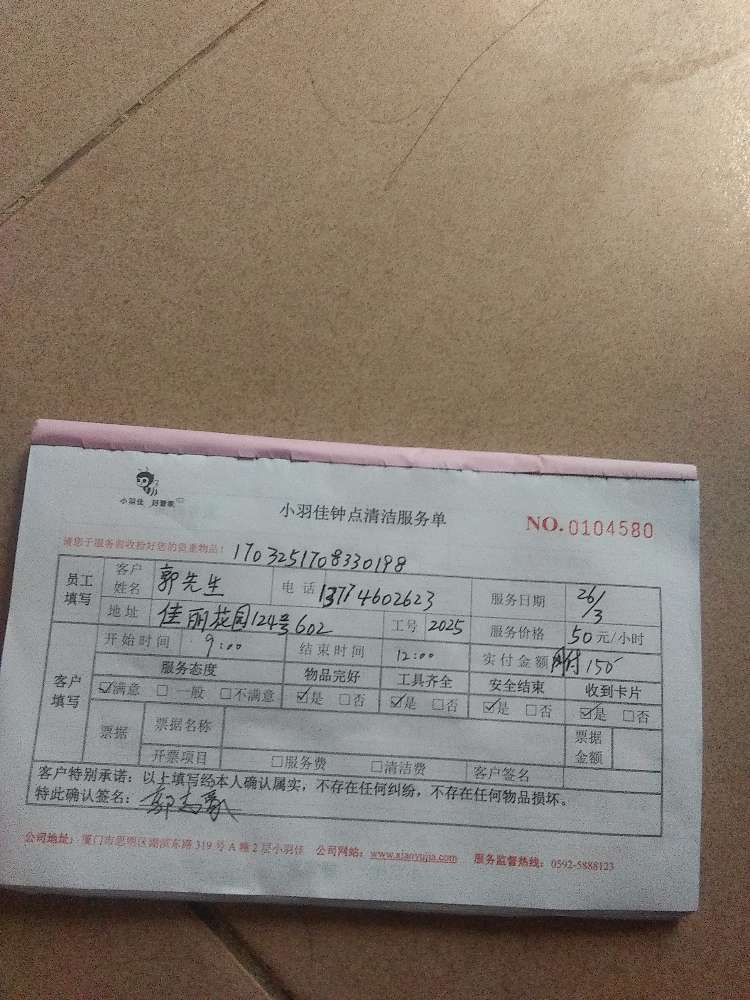 小羽佳 好管家
小羽佳钟点清洁服务单
NO.0104580
请您于服务前收拾好您的贵重物品!
1703251708330198
员工填写 客户姓名 郭先生 电话 13774602623 服务日期 26/3
地址 佳丽花园124号602 工号 2025 服务价格 50元/小时
客户填写 开始时间 9:00 结束时间 12:00 实付金额 网付150
服务态度 物品完好 工具齐全 安全结束 收到卡片
☑满意 □一般 □不满意 ☑是 □否 ☑是 □否 ☑是 □否 ☑是 □否
票据 票据名称 票据金额
开票项目 □服务费 □清洁费 客户签名
客户特别承诺:以上填写经本人确认属实,不存在任何纠纷,不存在任何物品损坏。
特此确认签名:郭
公司地址:厦门市思明区湖滨东路319号A幢2层小羽佳 公司网站:www.xiaoyujia.com 服务监督热线:0592-5888123